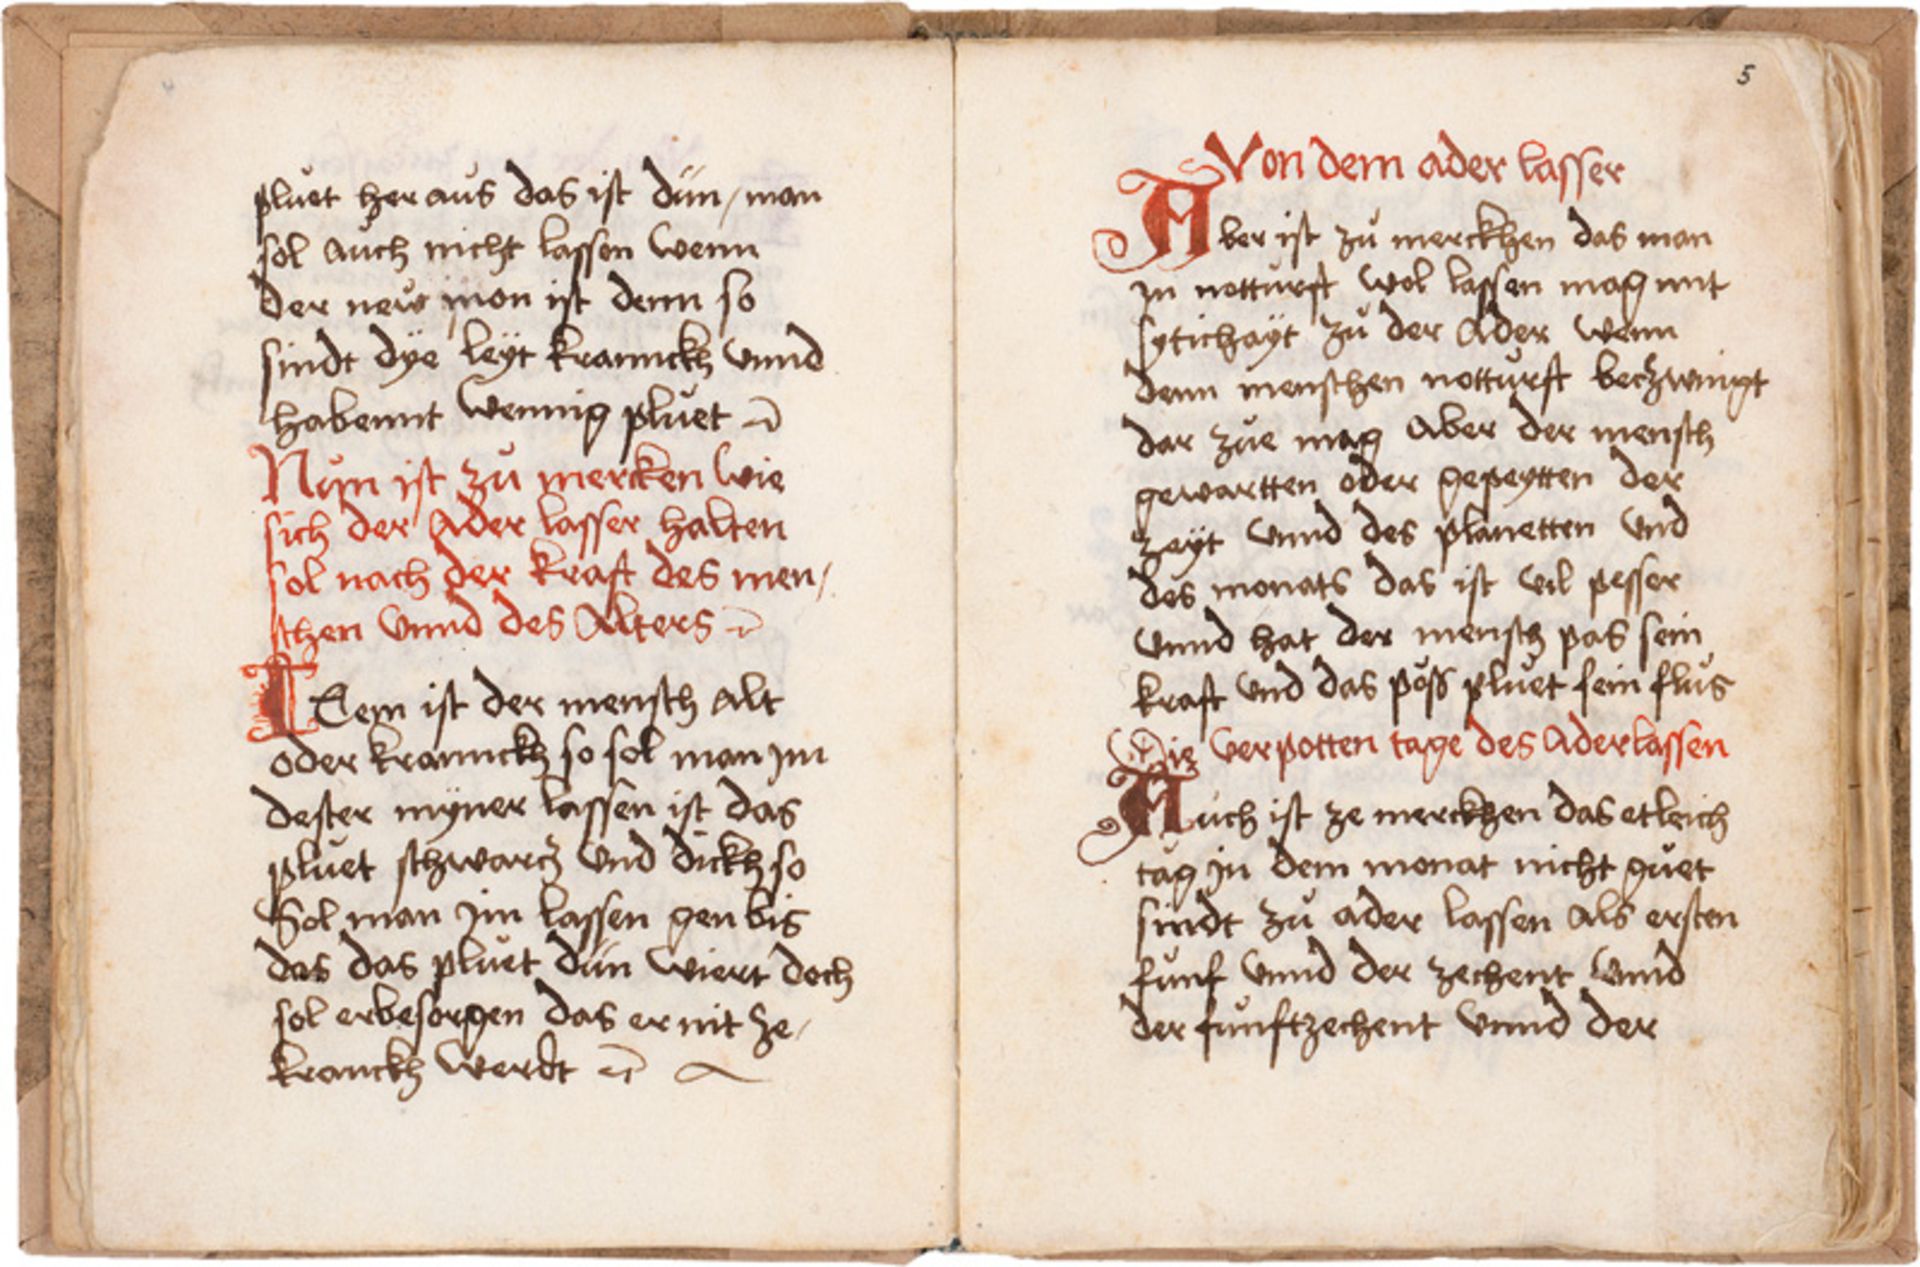 pluet heraus das ist dün / man
sol auch nicht lassen wenn
der new mon ist denn so
sindt dÿe leÿt krannckh vnnd
habennt wennig pluet
Nun ist zu mercken wie
sich der Ader lasser halten
sol nach der kraft des men /
schen vnnd des Alters
ITem ist der mensch alt
oder krannckh so sol man jm
dester mÿner lassen ist das
pluet schwarcz vnd dickh so
Sol man jm lassen gen bis
das das pluet dün wiert doch
sol er besorgen das er nit ze /
kranckh werdt
5
Von dem ader lasser
Aber ist zu merckhen das man
jn notturft wol lassen mag mit
sytichayt zu der Ader wenn
denn menschen notturft beczwingt
dar zue mag Aber der mensch
gewartten oder gepeytten der
zeÿt vnnd des planetten vnd
des monats das ist vil pesser
vnnd hat der mensch pas sein
kraft vnd das pöss pluet sein flus
Die verpotten tage des Aderlassen
Auch ist ze merckhen das etleich
tag jn dem monat nicht guet
sindt zu ader lassen Als ersten
funf vnnd der zechent vnnd
der funftzechent vnnd der